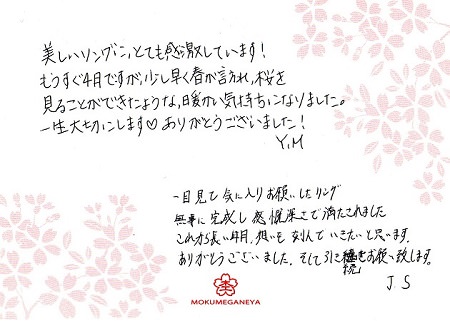 美しいリングに、とても感激しています！
もうすぐ4月ですが、少し早く春が訪れ、桜を
見ることができたような、暖かい気持ちになりました。
一生大切にします♡ ありがとうございました！
Y.M
一目見て気に入りお願いしたリング
無事に完成し感慨深さで満たされました
これから長い年月、想いを刻んでいきたいと思います。
ありがとうございました。そして引き続きお願い致します。
J.S
MOKUMEGANEYA